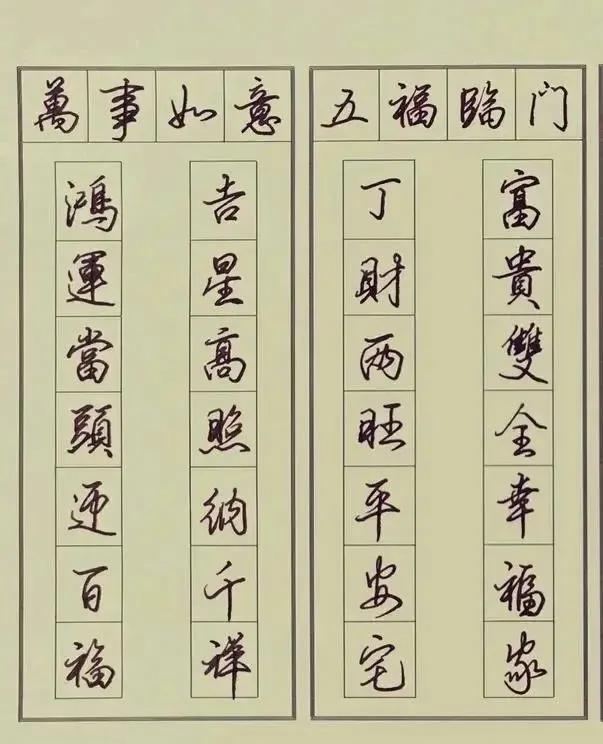 萬事如意
鴻運當頭迎百福
吉星高照納千祥
五福臨門
丁財两旺平安宅
富貴雙全幸福家